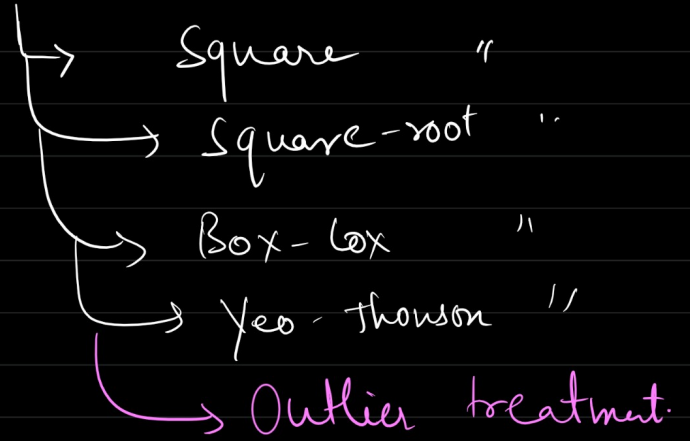 Square "
Square-root "
Box-Cox "
Yeo-thonson "
Outlier treatment.